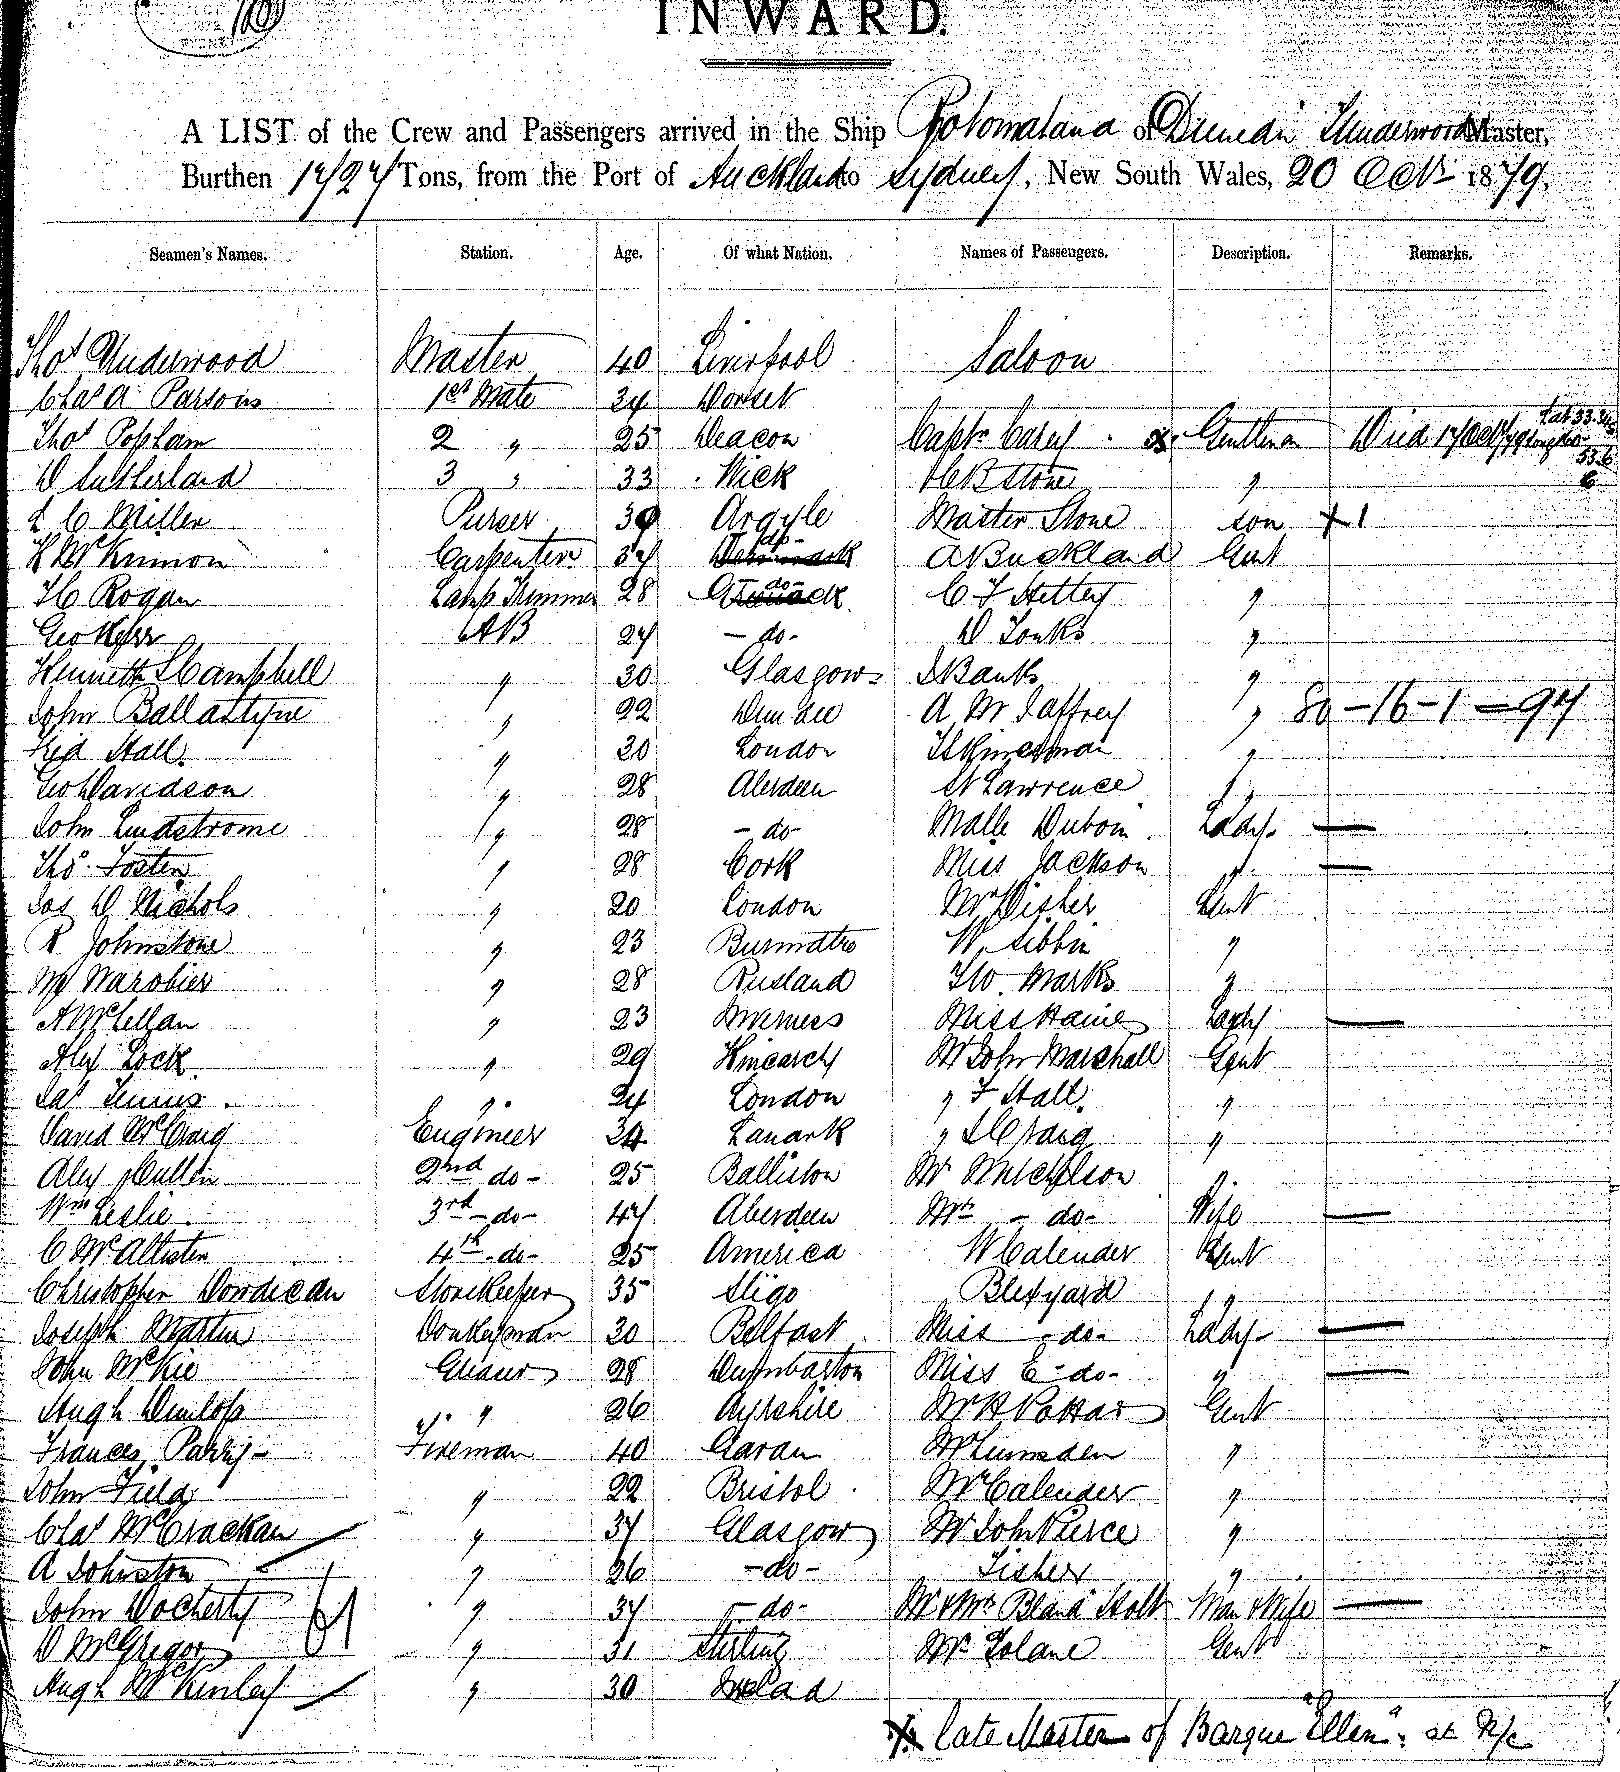 INWARD.
A LIST of the Crew and Passengers arrived in the Ship Rotomahana of Dunedin T Underwood Master,
Burthen 1727 Tons, from the Port of Auckland to Sydney, New South Wales, 20 Octr 1879.
Seamen's Names. Station. Age. Of what Nation. Names of Passengers. Description. Remarks.
Thos Underwood Master 40 Liverpool Saloon
Chas A Parsons 1st Mate 34 Dorset
Thos Popham 2 " 25 Deacon Captn Carey x Gentleman Died 17 Oct/79 Lat 33.34 Long 53.6 E
D Sutherland 3 " 33 Wick H B Stone "
L C Miller Purser 39 Argyle Master Stone son + 1
K McKinnon Carpenter 37 -do- A Buckland Gent
H C Rogan Lamp Trimmer 28 -do- C F Hettey "
Geo Kerr AB 27 -do- D Tonks "
Kenneth S Campbell " 30 Glasgow J Banks "
John Ballantyne " 22 Dundee A M Jaffrey " 80-16-1=97
Fred Hall " 30 London "
Geo Davidson " 28 Aberdeen St Lawrence "
John Lindstrome " 28 -do- Malle Dubois Lady —
Thos Foster " 28 Cork Miss Jackson " —
Jas D Nichols " 20 London Mr Disher Gent
R Johnstone " 23 W Sibbin "
Warobier " 28 Rusland F W Marks "
A McLellan " 23 Inverness Miss Haines Lady —
Alex Lock " 29 Mr John Marshall Gent
Jas " 24 London " F Hall "
David McCraig Engineer 34 Lanark " J Craig "
Alex Cullen 2nd do- 25 Balliston Mr Mitchelson "
Wm Leslie 3rd -do- 47 Aberdeen Mrs -do- Wife —
C McAllister 4th -do- 25 America W Calender Gent
Christopher Dowdican Storekeeper 35 Sligo Blexyard "
Joseph Martin Donkeyman 30 Belfast Miss -do- Lady —
John McKie Greaser 28 Dumbarton Miss E -do- " —
Hugh Dunlop " " 26 Ayrshire Mr H Gent
Frances Parry Fireman 40 Mr Lumsden "
John Field " 22 Bristol Mr Calender "
Chas McCrackan " 37 Glasgow Mr John Pierce "
A Johnston " 26 -do- Fisher "
John Docherty " 37 -do- Mr & Mrs Bland Holt Man & Wife —
D McGregor " 31 Stirling Mr Tolane Gent
Hugh McKinley " 30 Ireland
x late Master of Barque "Ellen" at N/c